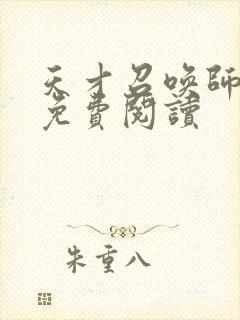 天才召喚師
免費閱讀
朱重八